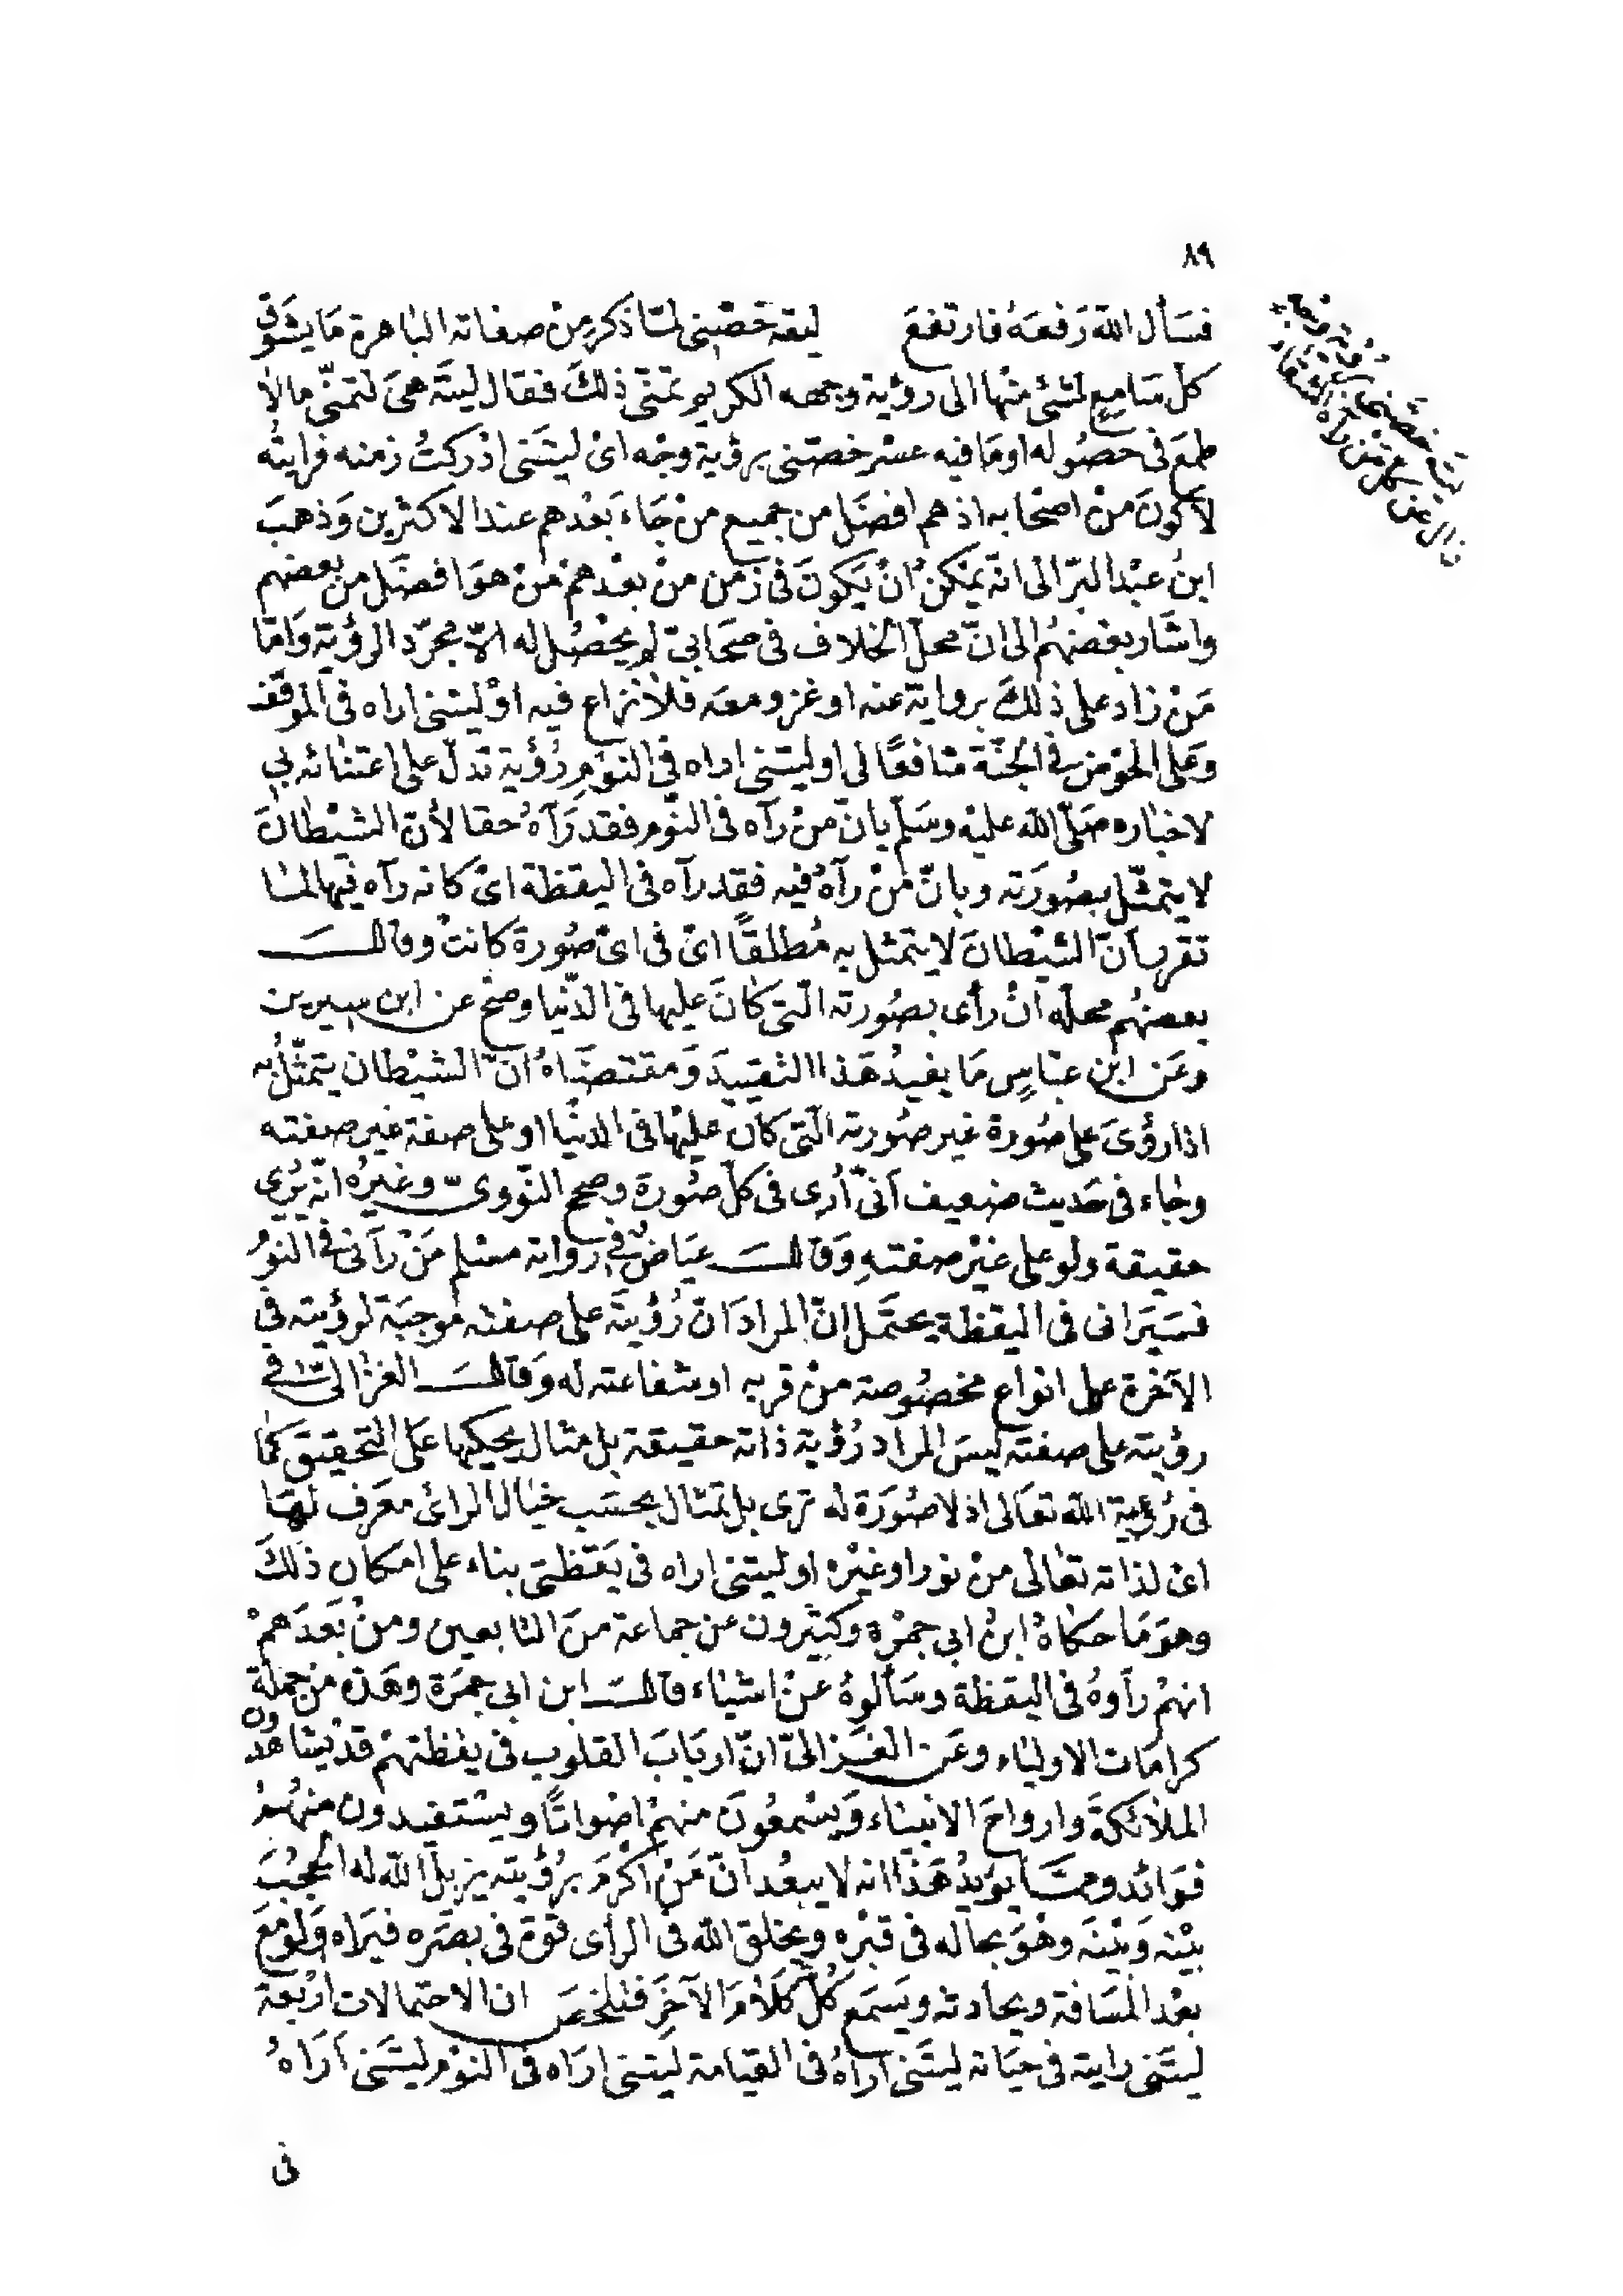 ٨٩
فسَأل اللهَ رَفعَهُ فارتفعَ ليته خَصَّنى لمّا ذكر مِنْ صفاته الباهرة مَا يشوّق
كلّ سَامِع لشئ منْها الى رؤية وجهه الكريم تمنّى ذلكَ فقال ليتَه هىَ لتمنّى مالا
طمعَ فى حصُوله اومَا فيه عسْر خصّنى برؤية وجْه اىْ ليتَنى ادْركتُ زمنه فرايتُه
لاكونَ منْ اصْحابه اذهم افضَل من جميع منْ جَاءَ بَعْدهم عند الاكثرين وَذهبَ
ابنُ عبْد البرّ الى انّه يمْكنُ انْ يَكونَ فى زمَن منْ بعْدهمْ منْ هوَ افضَل من بعضهم
واشَار بعْضهُم الى انّ محلّ الخلاف فى صحَابىّ لم يحْصُل له الاّ مجرّد الرؤية وَامّا
مَنْ زادَ على ذلكَ برواية عنه او غزو معَه فلا نزاع فيه اوْ ليتنى اراه فى الموقف
وعَلى الحوْض وفى الجنّة شافعًا لى او ليتَنى اراه فى النوْم رُؤية تدلّ على اعتنائه بى
لاخباره صَلّى الله عليْه وسَلّم بانّ منْ رآه فى النّوم فقد رَآهُ حقا لأنّ الشيْطانَ
لا يتمثّل بصُورَته وبانّ منْ رآهُ فيه فقد رآه فى اليقظة اىْ كانه رآه فيها لما
تقرر انّ الشيْطانَ لا يتمثل به مُطلقًا اىْ فى اىّ صُورة كانتْ وقالَ
بعضهُم محلّه انْ رأى بصُورته الّتى كانَ عليها فى الدّنيا وصَح عن ابن سيرين
وعَن ابْن عبّاسٍ مَا يفيدُ هَذا التقييدَ وَمقتضَاهُ انّ الشيْطان يتمثّلُ به
اذا رؤىَ على صُورة غير صُورته الّتى كان عليْها فى الدنْيا او على صفة غير صفته
وجَاء فى حَديث ضعيف انّى أُرى فى كلّ صُورة وصحح النّووىّ وغيرُه انّه يُرى
حقيقة ولو على غيْر صفتهِ وَقالَ عيَاضٌ فى رواية مسْلم مَنْ رآنى فى النوْم
فسَيَرانى فى اليقظة يحتمَل انّ المرادَ انّ رُؤْيتَه على صفته موجبَة لرؤيته فى
الآخرة على انواع مخصُوصة منْ قربه او شفاعته له وَقالَ الغزالىّ فى
رؤيته على صفته ليسَ المراد رُؤية ذاته حقيقة بل مثال يحكيها عَلى التّحقيق كما
فى رُؤية الله تعَالى اذ لا صُورَة له ترى بل تمثال بحسَب خيَال الرائى معَرف لهَا
اى لذاته تعَالى منْ نور او غيْره او ليتنى اراه فى يَقَظتى بناء على امكان ذلكَ
وهوَ مَا حكاهُ ابنُ ابى جمْرة وكثيرون عن جماعة منَ التابعين ومنْ بَعدَهمْ
انهمْ رأوهُ فى اليقظة وسَألوهُ عنْ اشيَاء قالَ ابن ابى جمرَة وهَذه من جملة
كرامَات الاولياء وعَن الغزالىّ انّ اربَابَ القلوب فى يقظتهمْ قدْ يشاهدُون
الملائكةَ وارواحَ الانبيَاء وَيسْمعُونَ منهمْ اصْواتًا ويسْتفيدون منهُمُ
فوَائد وممّا يؤيّدُ هَذا انه لا يبعُد انّ مَنْ اكْرمَ برُؤيته يزيلُ الله له الحجُبَ
بيْنه وَبيْنَه وهْوَ بحاله فى قبْره ويخلق الله فى الرائى قوّة فى بصَره فيَراه وَلَوْ معَ
بعْد المسَافة ويحادثه ويَسمَع كُلٌّ كَلامَ الآخَر فتلخصَ ان الاحتمالات ارْبعَة
ليتَنى رايته فى حيَاته ليتَنى اراهُ فى القيامة ليتنى ارَاه فى النوْم ليتَنى ارَاهُ
فى